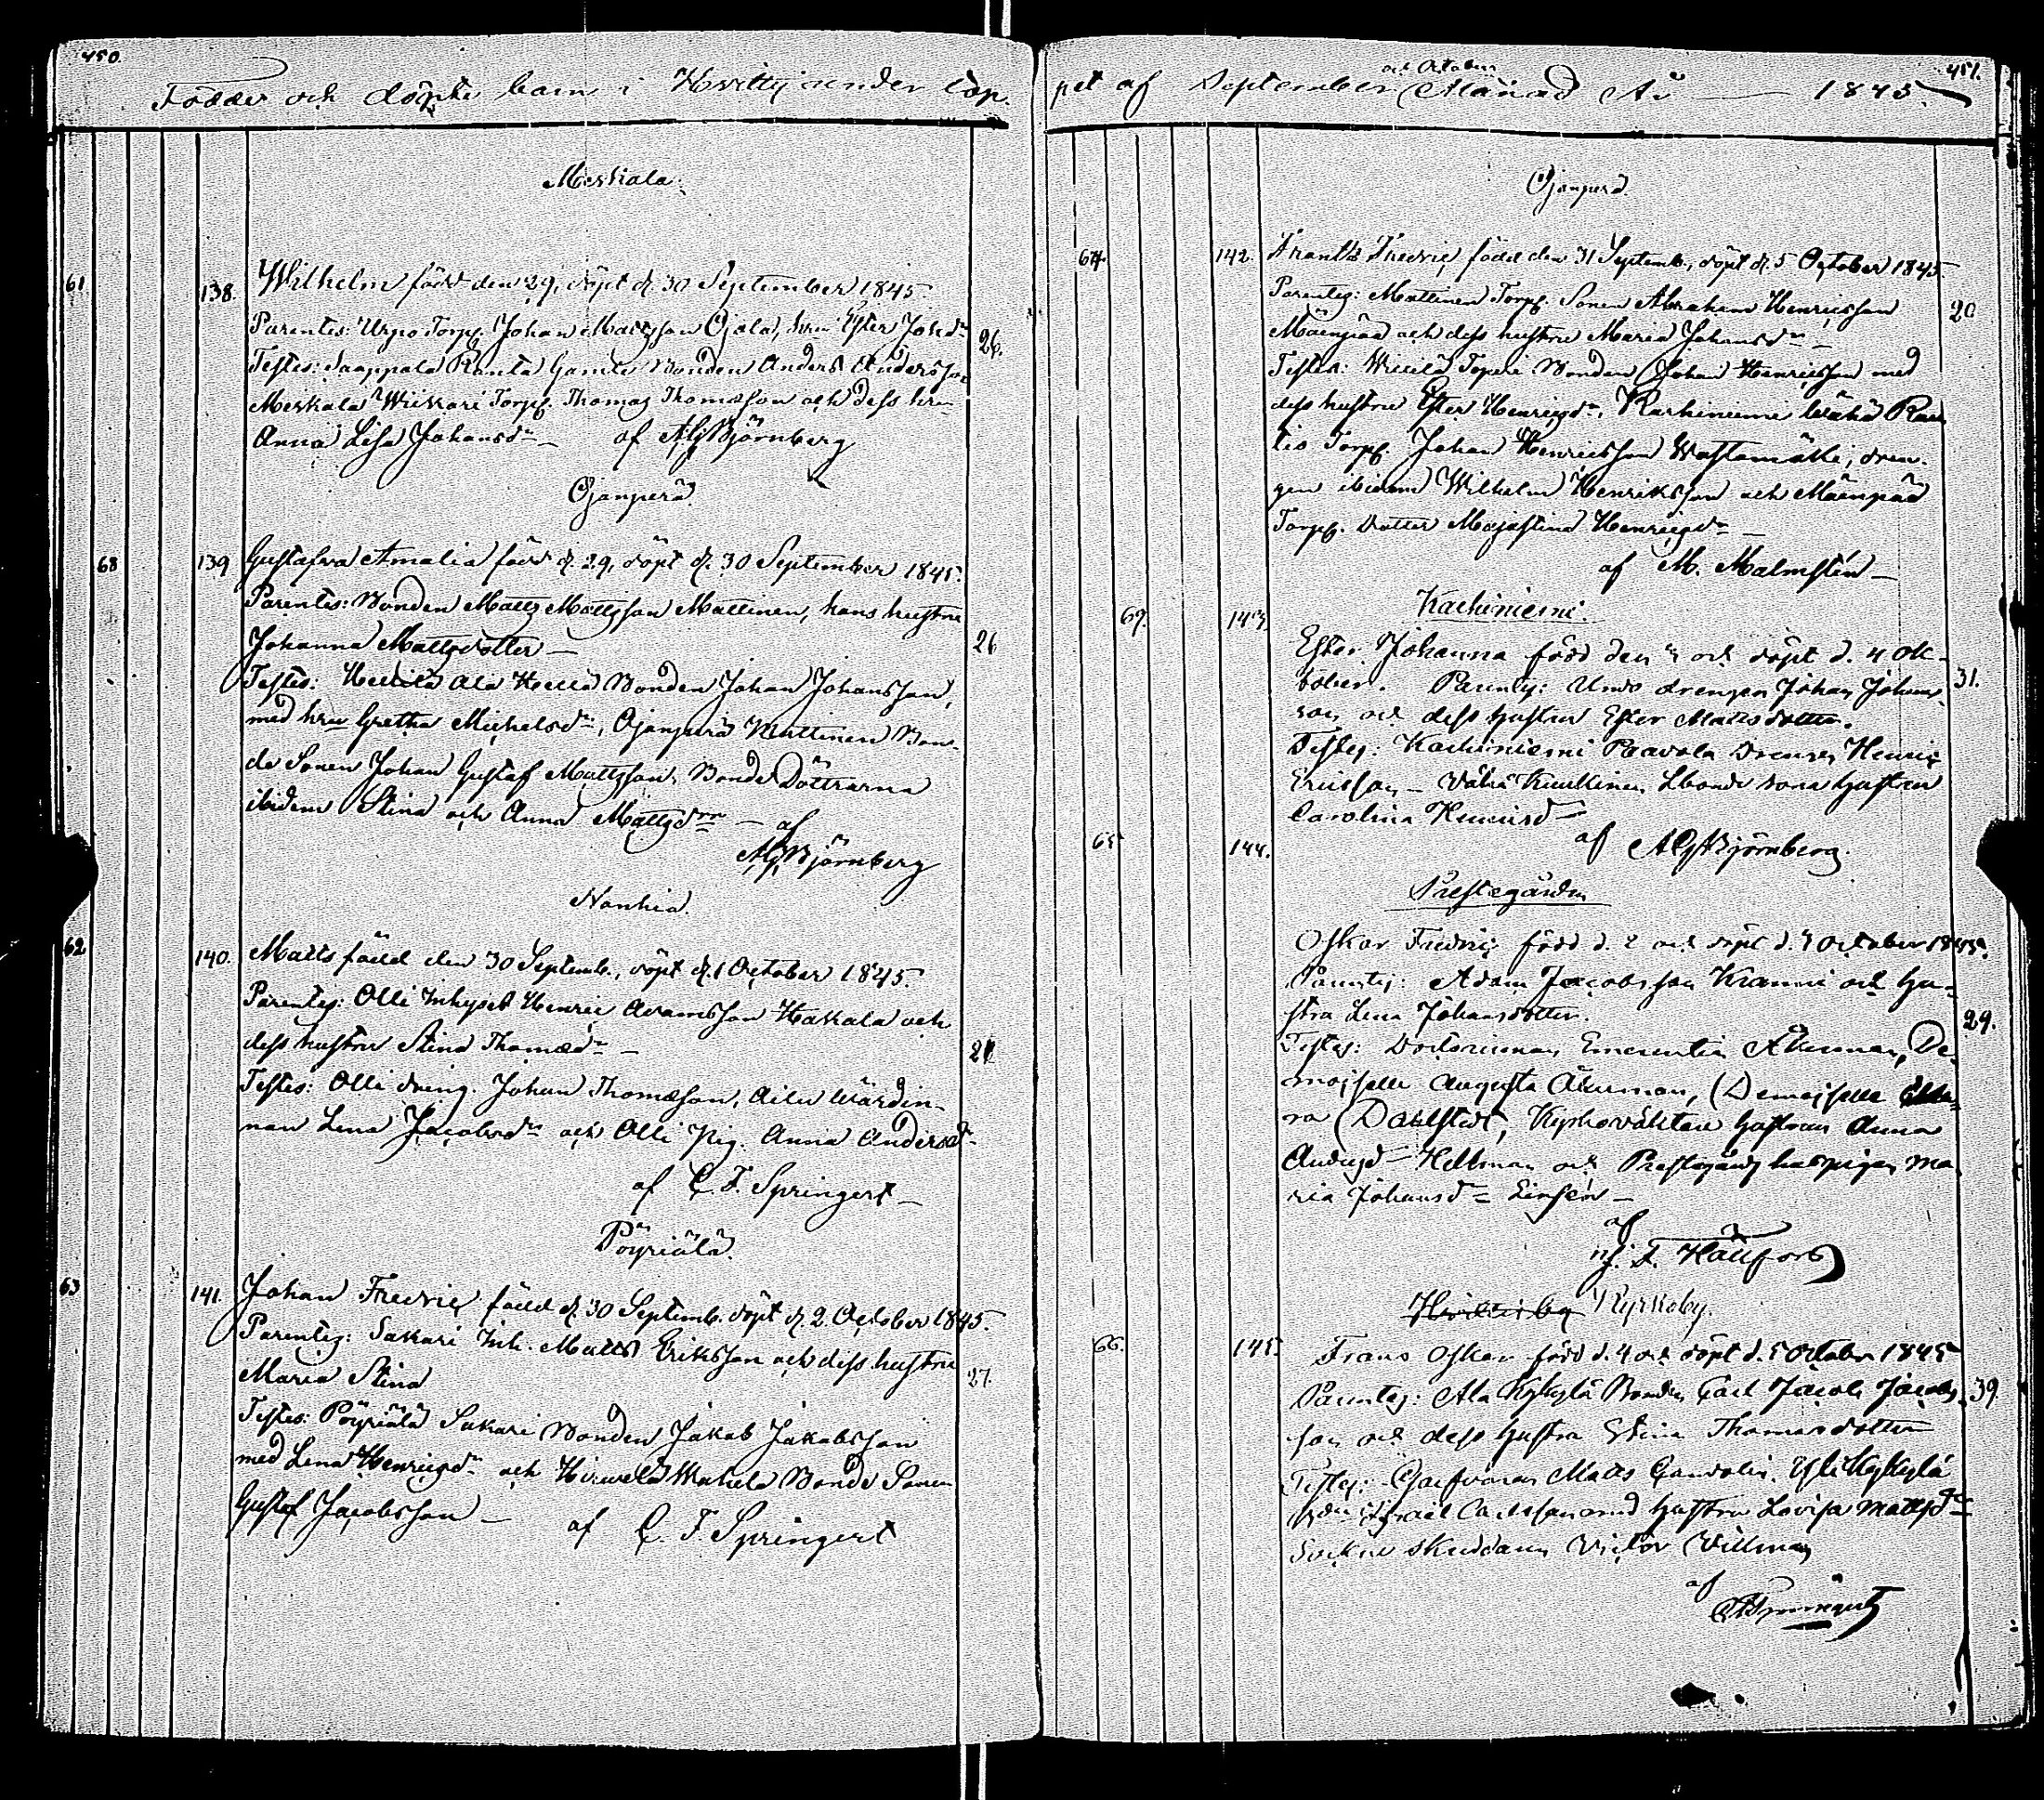 450.
Födde och döpte barn i Hvittis under lop-
Meskala.
61 138. Wilhelm född den 29, döpt d. 30 September 1845.
Parentes: Urpo Torp. Johan Mattsson Ojala, hru Ester Johsdr 26.
Testes: Sauppala Ranta Gamle Bonden Anders Andersson
Meskala Wickari Torp. Thomas Thomæson och dess hru
Anna Lisa Johansdr — af AGBjörnberg
Ojanperä
68 139 Gustafva Amalia född d. 29, döpt d. 30 September 1845.
Parentes: Bonden Matts Mattsson Mattinen, hans hustru
Johanna Mattsdotter — 26
Testes: Ala Bonden Johan Johansson,
med hru Gretha Michelsdr, Ojanperä Mattinen Bon-
de Sonen Johan Gustaf Mattsson, Bonde Döttrarna
ibidem Stina och Anna Mattsdrr — af
AGBjörnberg
Nanhia.
62 140. Matts född den 30 Septemb., döpt d. 1 October 1845.
Parentes: Olli Inhyses Henric Abramsson Hakala och
dess hustru Stina Thomædr —
Testes: Olli dräng. Johan Thomæson, Wärdin-
nan Lena Jacobsdr och Olli Pig. Anna Andersdr
af C. F. Springert —
Pöyriälä.
63 141. Johan Fredric född d. 30 Septemb. döpt d. 2 October 1845.
Parentes: Sakari Inh. Matts Eriksson och dess hustru
Maria Stina 27.
Testes: Pöyriälä Sakari Bonden Jakob Jakobsson
med Lena Henricsdr och Wahela Bonde Sonen
Gustaf Jacobsson —
af C. F. Springert
451.
och October
pet af September Månad År — 1845.
Ojanperä
64 142. Frantz Fredric född den 31 Septemb., döpt d. 5 October 1845.
Parentes: Mattinen Torp. Sonen Abraham Henricsson 20
Mäenpää och dess hustru Maria Johansdr —
Testes: Bonden Johan Henricsson med
dess hustru Ester Henricsdr, Karhiniemi Wähä Rau
tio Torp. Johan Henricsson Wastamäki, dren-
gen ibidem Wilhelm Henriksson och Mäenpää
Torp. Dotter Majastina Henricsdr —
af M. Malmstén —
Karhiniemi.
67. 143. Ester Johanna född den och döpt d. 4 Ok-
tober. Parentes: drengen Johan Johans- 31.
son och dess hustru Ester Mattsdotter.
Testes: Karhiniemi Paavola Drengen Henric
Ericsson — Vähä bonde sona hustrun
Carolina Henricsdr
af AGBjörnberg.
65 144. Prestegården
Oskar Fredric född d. 2 och döpt d. 4 October 1845.
Parentes: Adam Jacobsson Kranni och hu-
stru Lena Johansdotter. 29.
Testes: Doctorinnan Emerentia Åkerman, De-
moiselle Augusta Åkerman, Demoiselle
ra Dahlstedt, Kyrkoväktare hustrun Anna
Andersdr Hellman och Prestegårds huspigan Ma
ria Johansdr Linsén —
af
Hällfors
Kyrkoby.
66. 145. Frans Oskar född d. 4 och döpt d. 5 October 1845
Parentes: Ala Kykylä Bonden Carl Jacob Jacobs 39
son och dess hustru Stina Thomasdotter
Testes: Garfvaren Matts Gandolin, Yli Kykylä
Israel Carlsson med hustru Lovisa Mattsdr
Sockne skräddaren Victor Villman
af
CFSpringert